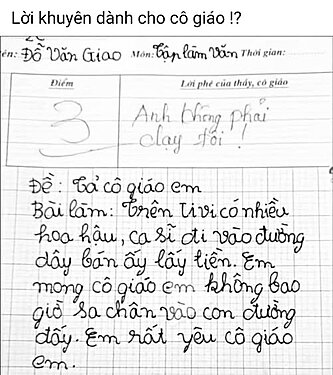 Lời khuyên dành cho cô giáo !?
ên: Đỗ Văn Giao Môn: Tập làm Văn Thời gian:
Điểm Lời phê của thầy, cô giáo
3 Anh không phải
dạy tôi !
Đề : Tả cô giáo em
Bài làm: Trên tivi có nhiều
hoa hậu, ca sĩ đi vào đường
dây bán ấy lấy tiền. Em
mong cô giáo em không bao
giờ sa chân vào con đường
đấy. Em rất yêu cô giáo
em.